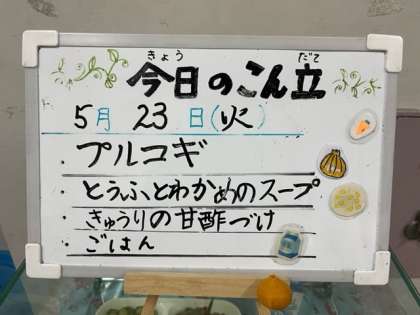 きょう だて
今日のこん立
5月 23日(火)
・プルコギ
・とうふとわかめのスープ
・きゅうりの甘酢づけ
・ごはん